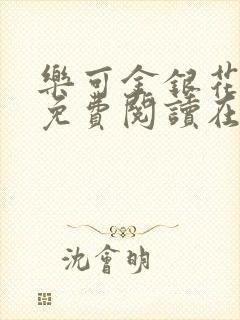 樂可金銀花
免費閱讀在
沈會明